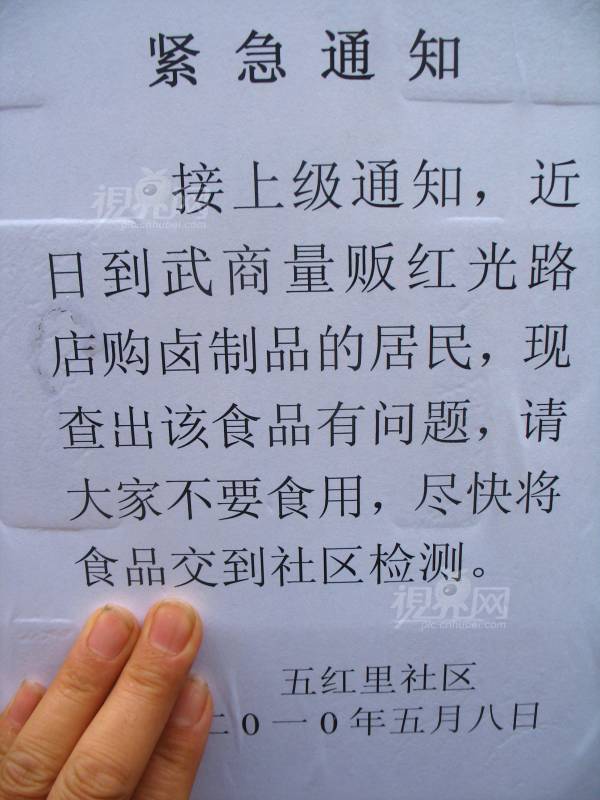 紧急通知
接上级通知，近
日到武商量贩红光路
店购卤制品的居民，现
查出该食品有问题，请
大家不要食用，尽快将
食品交到社区检测。
五红里社区
二0一0年五月八日
視界网
pic.cnhubei.com
視界网
pic.cnhubei.com